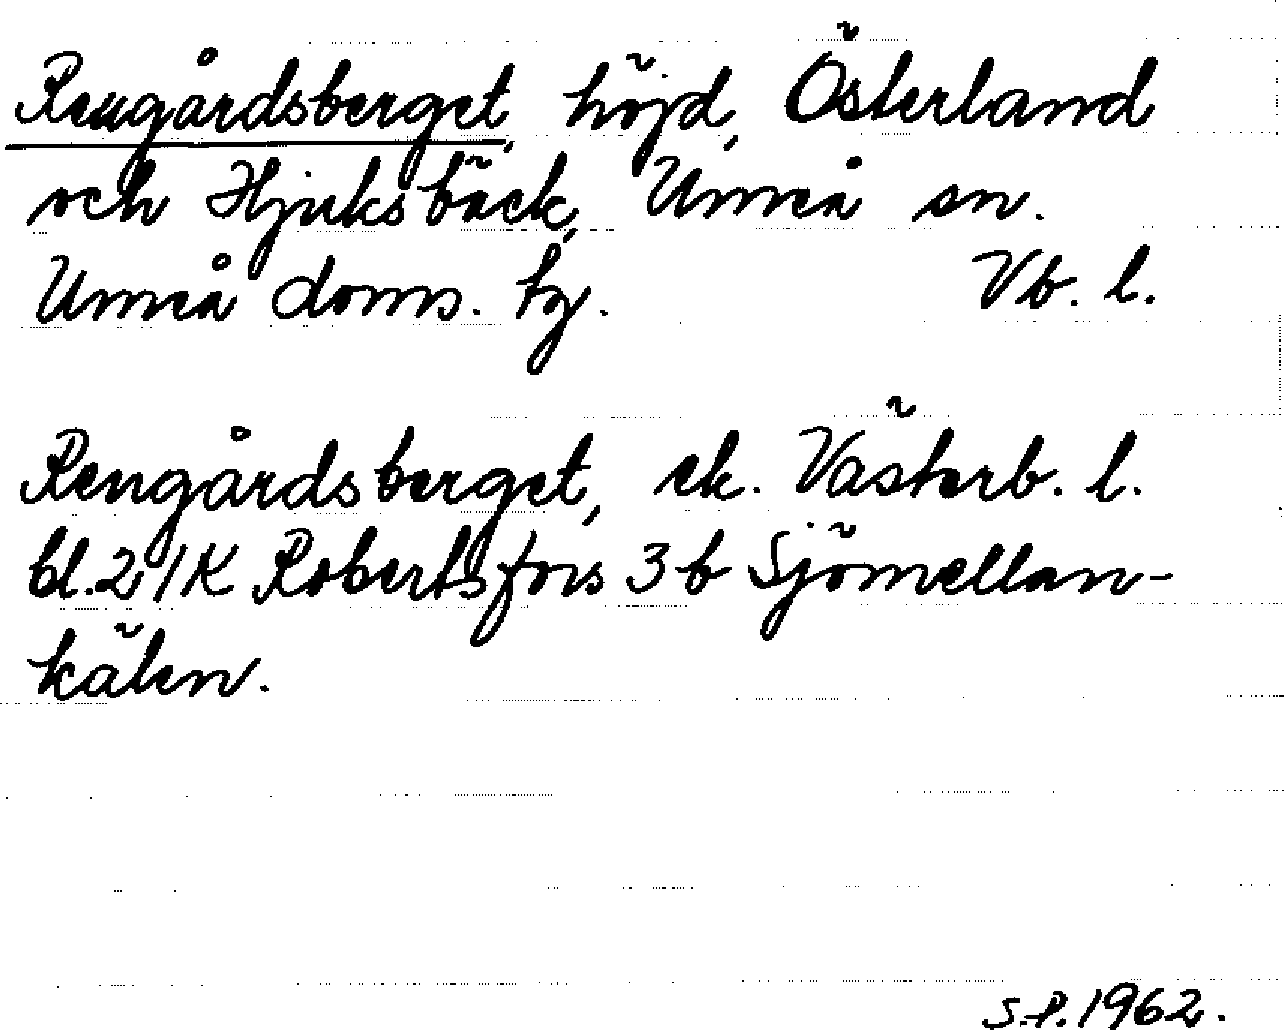 Rengårdsberget, höjd, Österland
och Hjuksbäck, Umeå sn.
Umeå doms. tg. Vb. l.
Rengårdsberget, ek. Västerb. l.
bl. 21K Robertsfors 3 b Sjömellan-
kälen.
S.P. 1962.